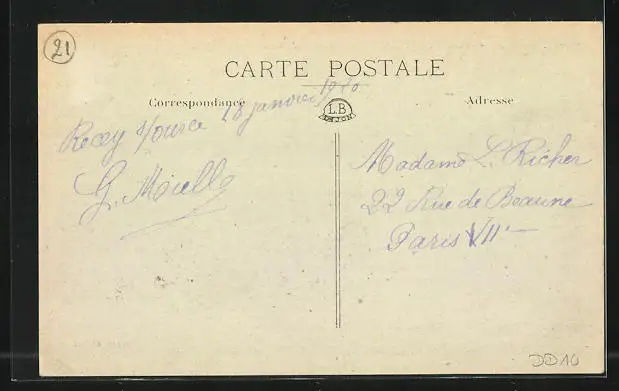 21
CARTE POSTALE
Correspondance
Adresse
LB
DIJON
Recey s/ource 18 janvier 1920
G. Mielle
Madame L. Richer
22 Rue de Beaune
Paris VIIe
DD10